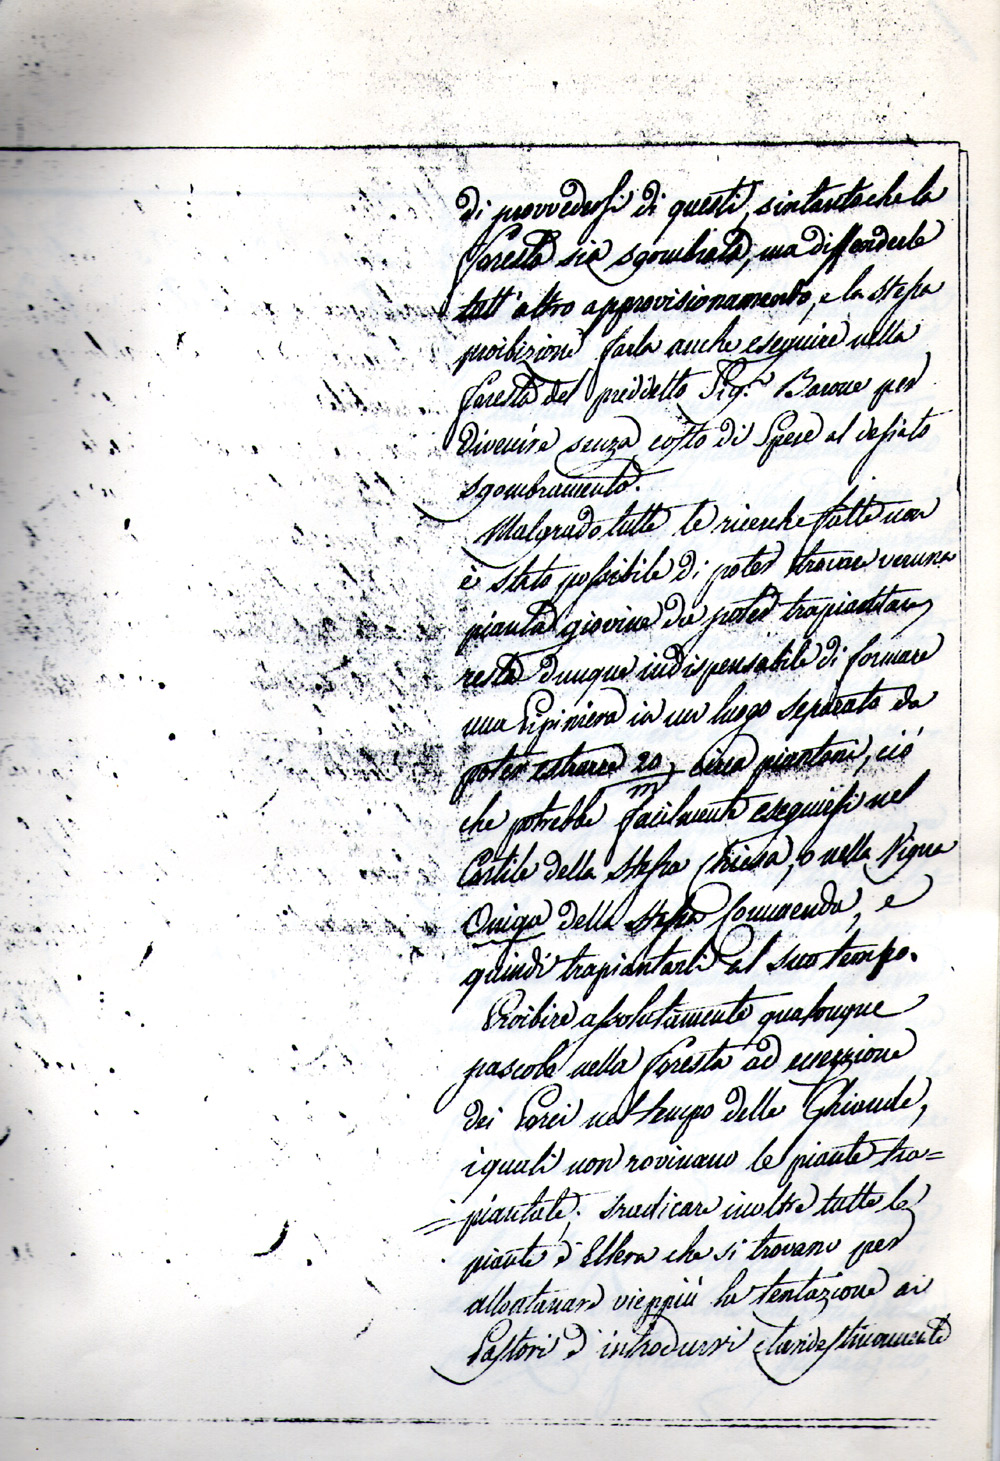 di provvedersi di questi, sintantoche la
foresta sia sgombrata, ma diffenderle
tutt' altro approvisionamento, e la stessa
proibizione farla anche eseguire nella
foresta del predetto Sig.r Barone per
divenire senza costo di Spese al desiato
sgombramento.
Malgrado tutte le ricerche fatte non
è stato possibile di poter trovare veruna
pianta giovine da poter trapiantare,
resta dunque indispensabile di formare
una Pipiniera in un luogo separato da
poter estrarre 20/m circa piantoni, ciò
che potrebbe facilmente eseguirsi nel
Cortile della stessa Chiesa, o nella Vigna
della stessa Commenda, e
quindi trapiantarli al suo tempo.
Proibire assolutamente qualounque
pascolo nella foresta ad eccezzione
dei Porci nel tempo delle Ghiande,
i quali non rovinano le piante tra=
=piantate; sradicare inoltre tutte le
piante d'Ellera che si trovano per
allontanare vieppiù la tentazione ai
Pastori d'introdurvi clandestinamente